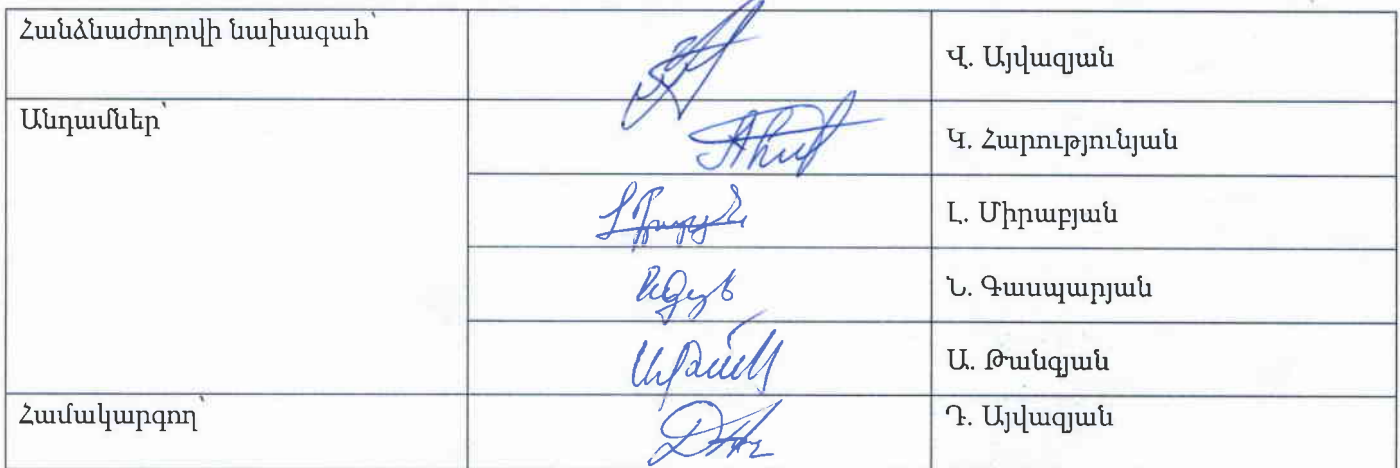 Հանձնաժողովի նախագահ՝
Վ. Այվազյան
Անդամներ՝
Կ. Հարությունյան
Լ. Միրաբյան
Ն. Գասպարյան
Ա. Թանգյան
Համակարգող՝
Դ. Այվազյան